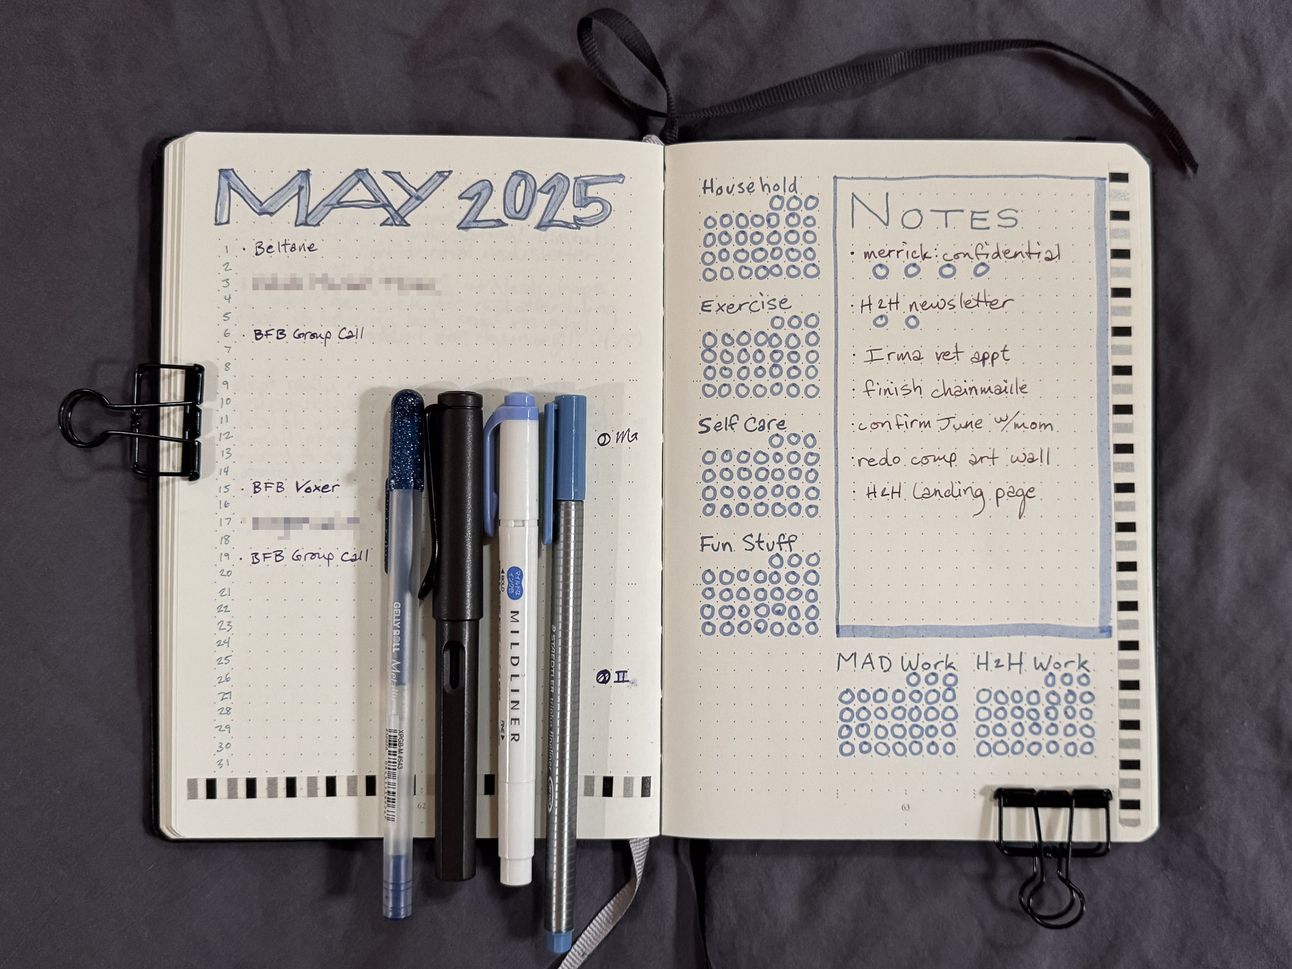 MAY 2025
1 · Beltane
2
3
4
5
6 · BFB Group Call
7
8
9
10
11
12
13
14
15 · BFB Voxer
16
17
18
19 · BFB Group Call
20
21
22
23
24
25
26
27
28
29
30
31
62
GELLY ROLL
XPGB-M #543
MILDLINER
STAEDTLER
Household
Exercise
Self Care
Fun Stuff
NOTES
· merrick: confidential
· H2H newsletter
· Irma vet appt
· finish chainmaille
· confirm June w/mom
· redo comp art wall
· H2H landing page
MAD Work
H2H Work
63